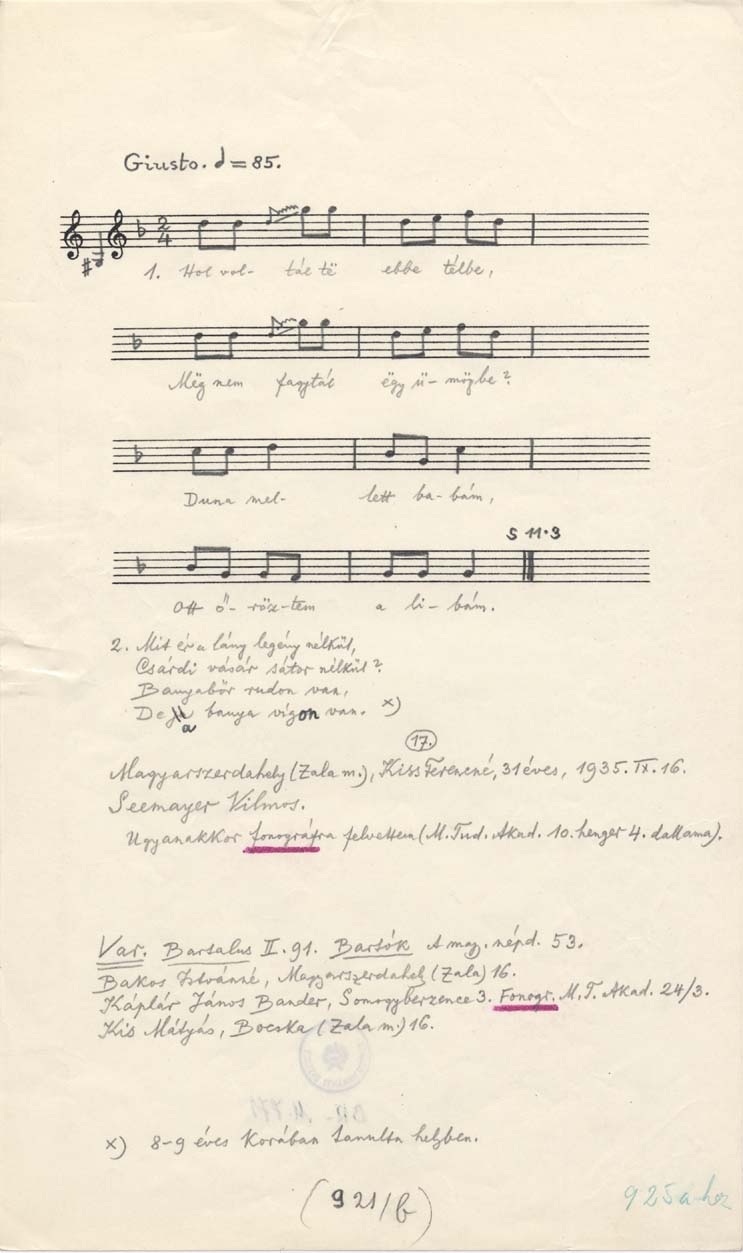 Giusto. ♩=85.
1. Hol vol- tál të ebbe télbe,
Mëg nem fagytál ëgy ü- mögbe?
Duna mel- lett ba- bám,
S 11·3
Ott ő- röz- tem a li- bám.
2. Mit ér a lány legény nélkül,
Csárdi vásár sátor nélkül?
Banyabőr rudon van,
De a banya vígon van. x)
17.
Magyarszerdahely (Zala m.), Kiss Ferencné, 31 éves, 1935. IX. 16.
Seemayer Vilmos.
Ugyanakkor fonográfra felvettem (M. Tud. Akad. 10. henger 4. dallama).
Var. Bartalus II. 91. Bartók A mag. népd. 53.
Bakos Istvánné, Magyarszerdahely (Zala) 16.
Káplár János Bander, Somogyberzence 3. Fonogr. M. T. Akad. 24/3.
Kis Mátyás, Bocska (Zala m.) 16.
x) 8-9 éves korában tanulta helyben.
(921/b)
925a-hoz